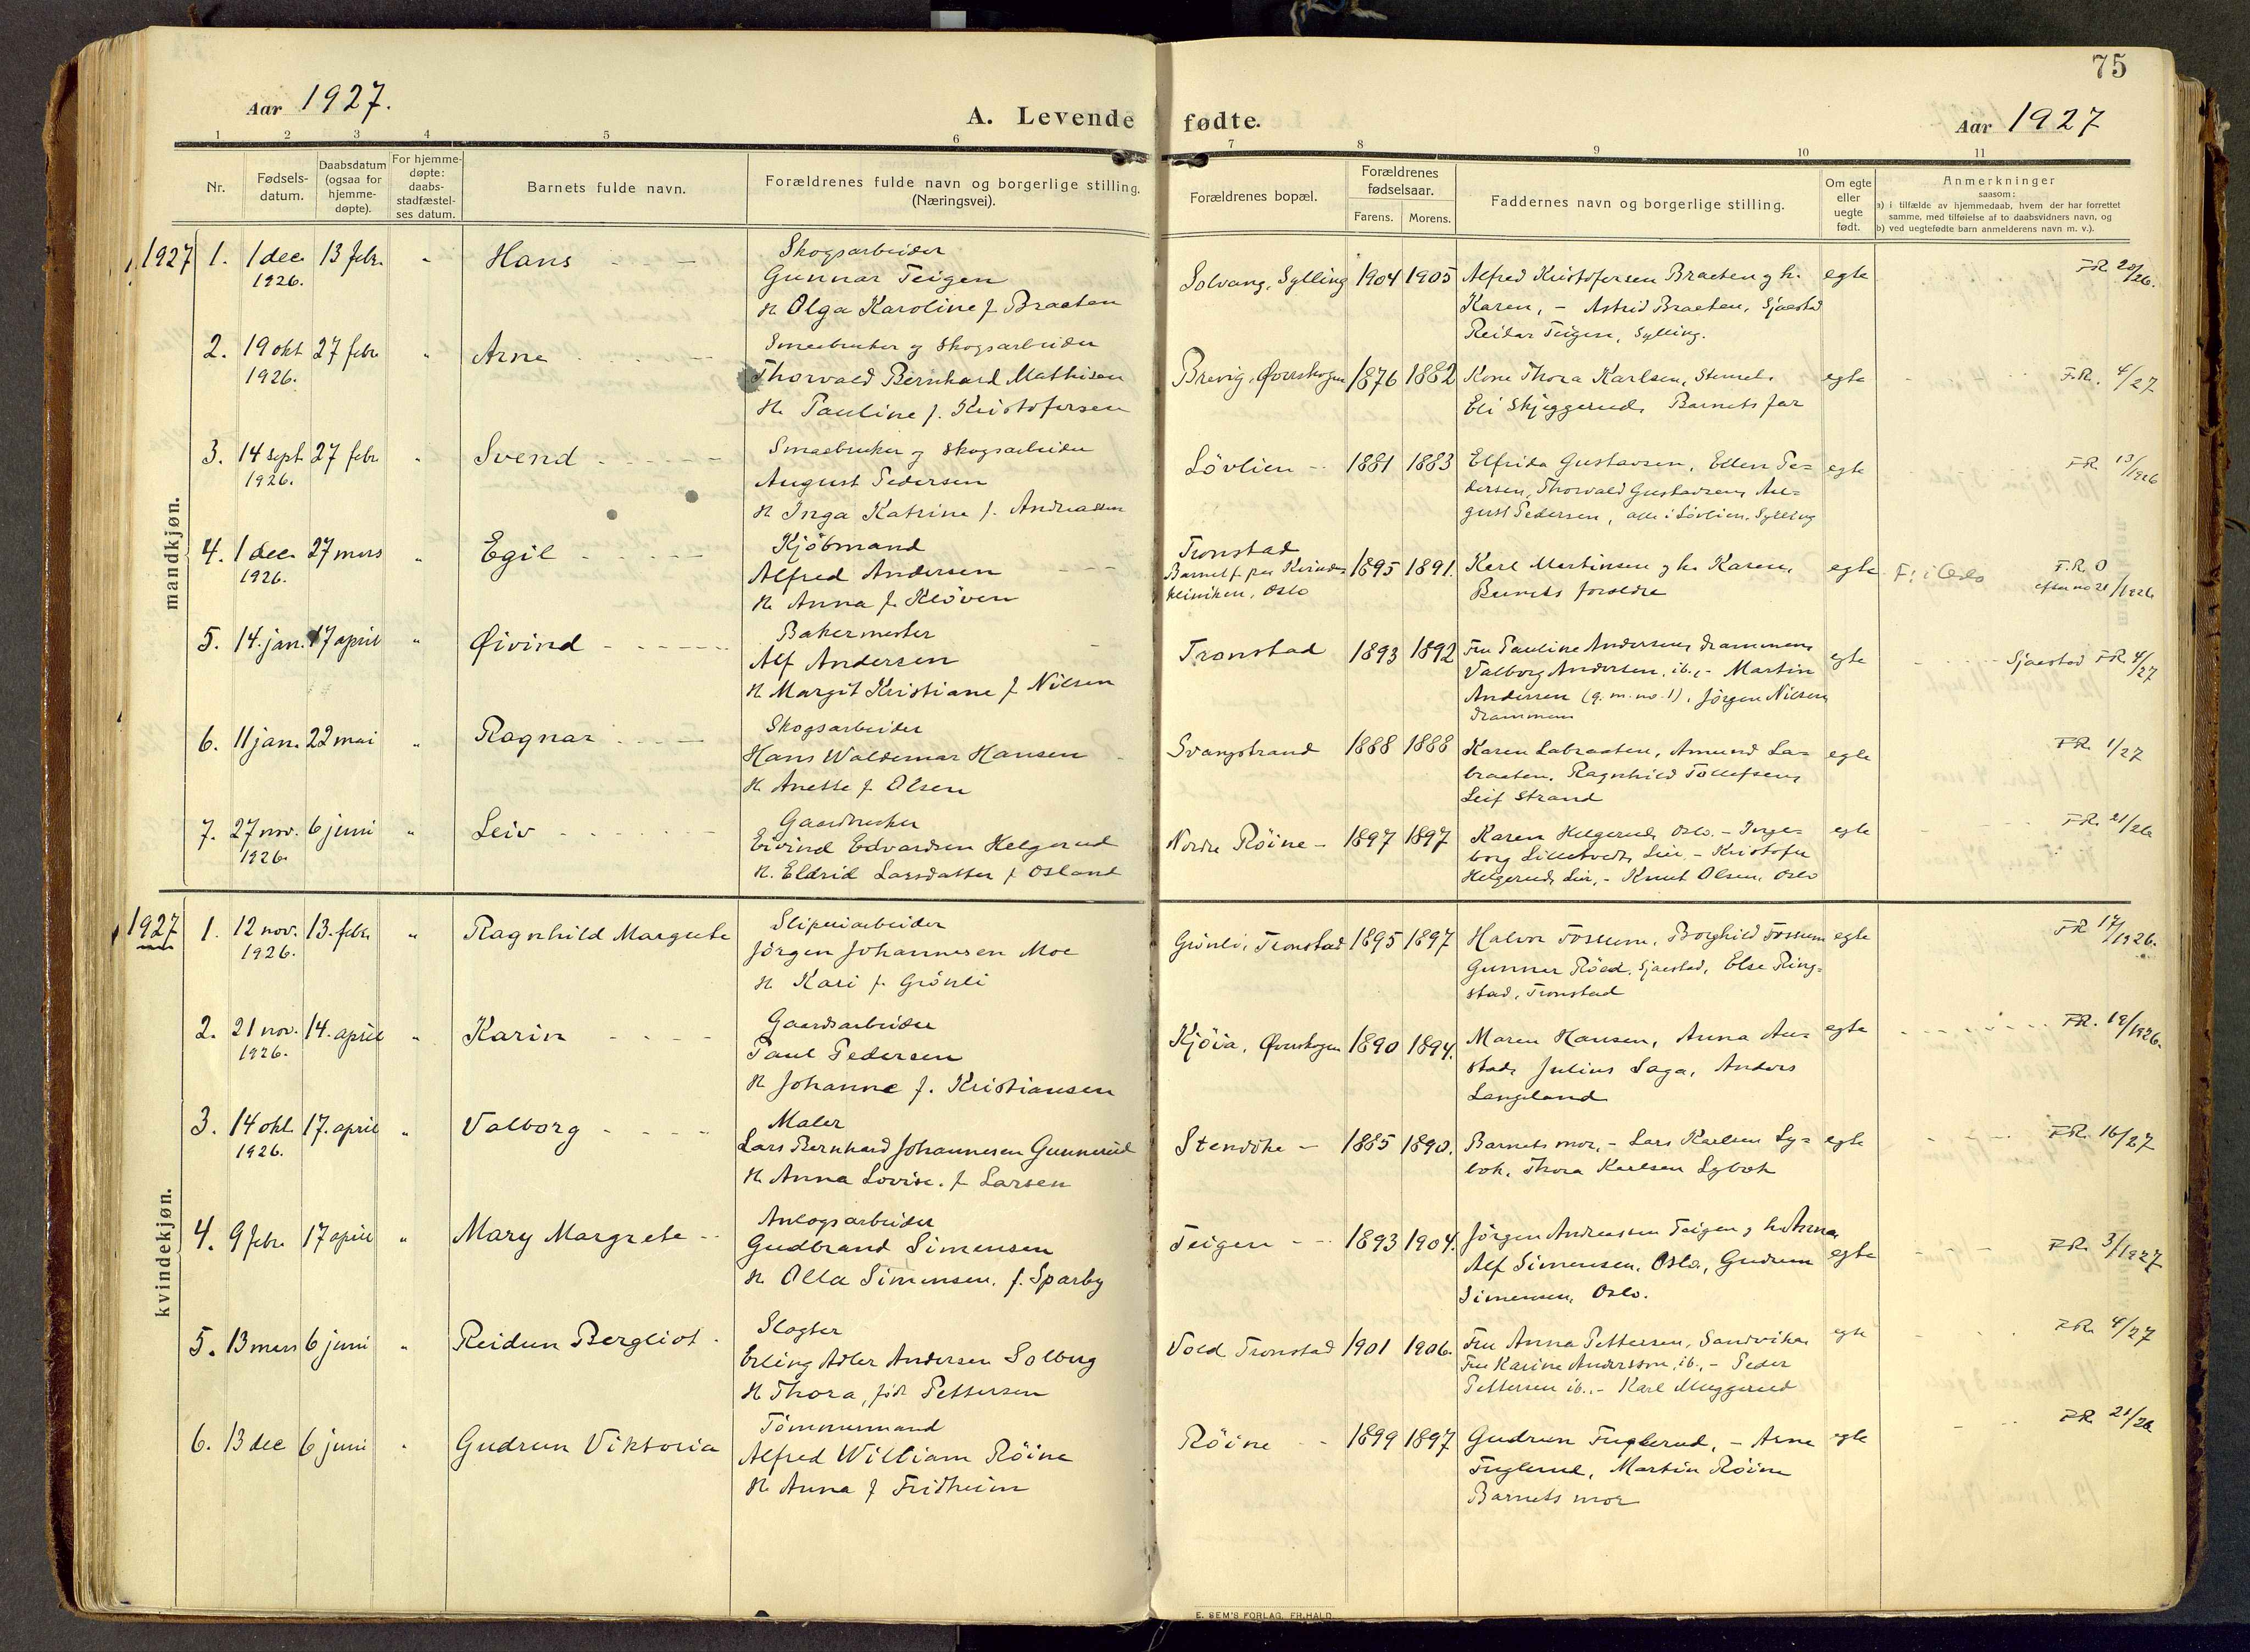 75
Aar 1927.
A. Levende fødte.
Aar 1927
1 2 3 4 5 6 7 8 9 10 11
Nr.
Fødsels-
datum.
Daabsdatum
(ogsaa for
hjemme-
døpte).
For hjemme-
døpte:
daabs-
stadfæstel-
ses datum.
Barnets fulde navn.
Forældrenes fulde navn og borgerlige stilling.
(Næringsvei).
Forældrenes bopæl.
Forældrenes
fødselsaar.
Farens. Morens.
Faddernes navn og borgerlige stilling.
Om egte
eller
uegte
født.
Anmerkninger
saasom:
a) i tilfælde av hjemmedaab, hvem der har forrettet
samme, med tilføielse af to daabsvidners navn, og
b) ved uegtefødte barn anmelderens navn m. v.).
mandkjøn.
1927 1. 1 dec. 13 febr. " Hans
1926.
Skogsarbeider
Gunnar Teigen
H. Olga Karoline f. Braaten
Solvang, Sylling 1904 1905
Alfred Kristofersen Braaten og h.
Karen, - Astrid Braaten, Sjaastad
Reidar Teigen, Sylling.
egte
FR 20/26.
2. 19 okt 27 febr " Arne
1926.
Smaabruker og skogsarbeider
Thorvald Bernhard Mathisen
H. Pauline f. Kristofersen
Brevig, Øvreskogen 1876 1882
Kone Thora Karlsen,
Eli Skjeggerud, Barnets far
egte
F.R. 4/27
3. 14 sept. 27 febr " Svend
1926.
Smaabruker og skogsarbeider
August Pedersen
H. Inga Katrine f. Andreassen
Lövlien 1881 1883
Elfrida Gustavsen, Ellen Pe=
dersen, Thorvald Gustavsen, Au=
gust Pedersen, alle i Lövlien, Sylling
egte
FR 13/1926
4. 1 dec. 27 mars " Egil
1926.
Kjöbmand
Alfred Andersen
H. Anna f. Klöven
Tronstad
Barnet f. paa Kvinde=
kliniken, Oslo
1895 1891.
Karl Martinsen og h. Karen,
Barnets foreldre
egte
F. i Oslo
F.R. 0
efter no 21/1926
5. 14. jan. 17 april " Øivind
Bakermester
Alf Andersen
H. Margit Kristiane f. Nilsen
Tronstad 1893 1892
Fru Pauline Andersen, Drammen,
Valborg Andersen, ib., - Martin
Andersen (g. m. no. 1), Jörgen Nilsen,
Drammen
egte
Sjaastad FR 4/27
6. 11 jan. 22 mai " Ragnar
Skogsarbeider
Hans Waldemar Hansen
H. Anette f. Olsen
Svangstrand 1888 1888
Karen Labraaten, Amund La=
braaten, Ragnhild Tollefsen,
Leif Strand
egte
FR. 1/27
7. 27 nov. 6 juni " Leiv
1926.
Gaardbruker
Eivind Edvardsen Helgerud
H. Eldrid Larsdatter f. Osland
Nordre Röine 1897 1897
Karen Helgerud, Oslo. - Inge=
borg Lilletvedt, Lier, - Kristofer
Helgerud, Lier, - Knut Olsen, Oslo
egte
FR. 21/26
kvindekjøn.
1927 1. 12 nov. 13. febr. " Ragnhild Margrete
1926.
Sliperiarbeider
Jörgen Johannesen Moe
H. Kari f. Grönli
Grönli, Tronstad 1895 1897
Halvor Fossum, Borghild Fossum
Gunnar Röed, Sjaastad, Else Ring=
stad, Tronstad
egte
FR 17/1926.
2. 21 nov. 14. april " Karin
1926.
Gaardsarbeider
Paul Pedersen
H. Johanne f. Kristiansen
Kjöia, Øvreskogen 1890 1894.
Maren Hansen, Anna Au=
stad, Julius Saga, Anders
Langeland
egte
FR. 19/1926.
3. 14 okt. 17. april " Valborg
1926.
Maler
Lars Bernhard Johannesen Gunnerud
H. Anna Lovise. f. Larsen
1885 1890.
Barnets mor, - Lars Karlsen Ly=
bek, Thora Karlsen Lybek
egte
FR. 16/27
4. 9 febr. 17 april " Mary Margrete
Anlegsarbeider
Gudbrand Simensen
H. Olla Simensen, f. Sparby
Teigen 1893 1904.
Jörgen Andreassen Teigen og h. Anna
Alf Simensen, Oslo, Gudrun
Simensen, Oslo.
egte
FR. 3/1927
5. 13 mars 6 juni " Reidun Bergliot
Slagter
Erling Adler Andersen Solberg
H. Thora, föd Pettersen
Vold Tronstad 1901 1906.
Fru Anna Pettersen, Sandvika
Fru Karine Andersson, ib., - Peder
Pettersen ib., - Karl Muggerud
egte
FR. 4/27
6. 13 dec 6 juni " Gudrun Viktoria
Tömmermand
Alfred William Röine
H. Anna f. Fridheim
Röine 1899 1897
Gudrun Fuglerud, - Arne
Fuglerud, Martin Röine
Barnets mor
egte
FR 21/26
E. SEM'S FORLAG, FR.HALD.